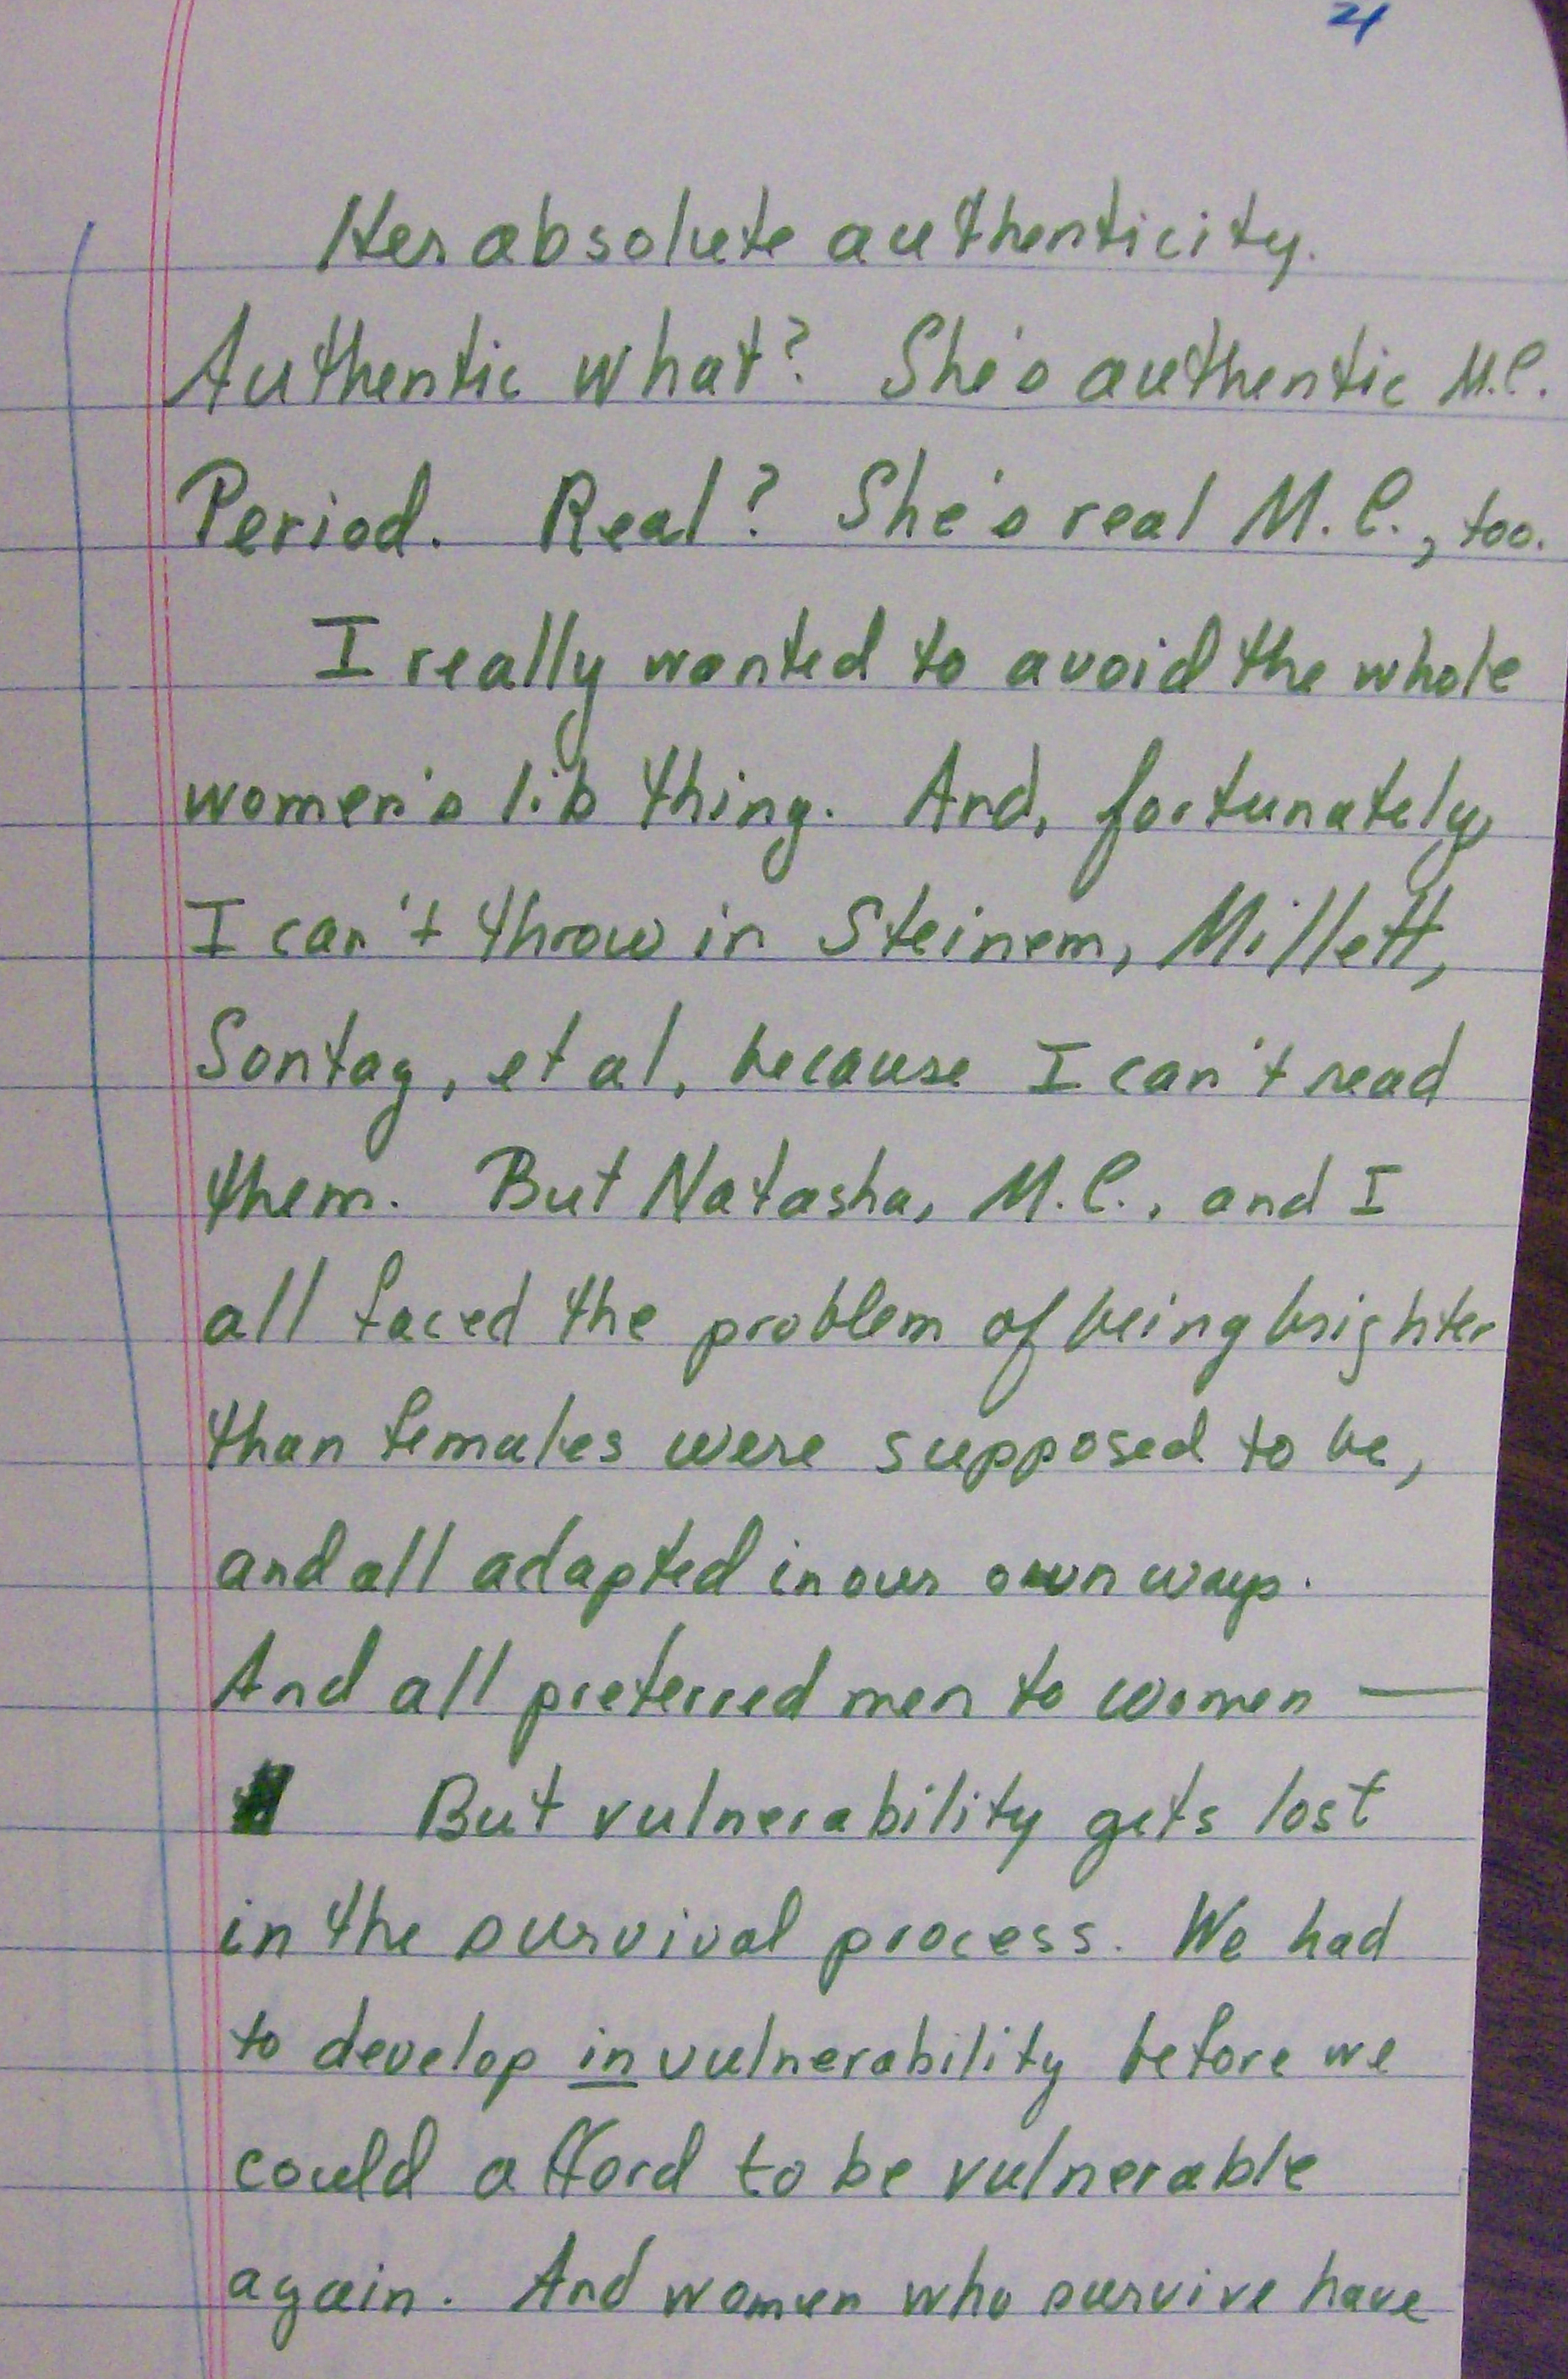 Her absolute authenticity.
Authentic what? She's authentic M.C.
Period. Real? She's real M.C., too.
I really wanted to avoid the whole
women's lib thing. And, fortunately,
I can't throw in Steinem, Millett,
Sontag, et al, because I can't read
them. But Natasha, M.C., and I
all faced the problem of being brighter
than females were supposed to be,
and all adapted in our own ways.
And all preferred men to women —
But vulnerability gets lost
in the survival process. We had
to develop invulnerability before we
could afford to be vulnerable
again. And women who survive have